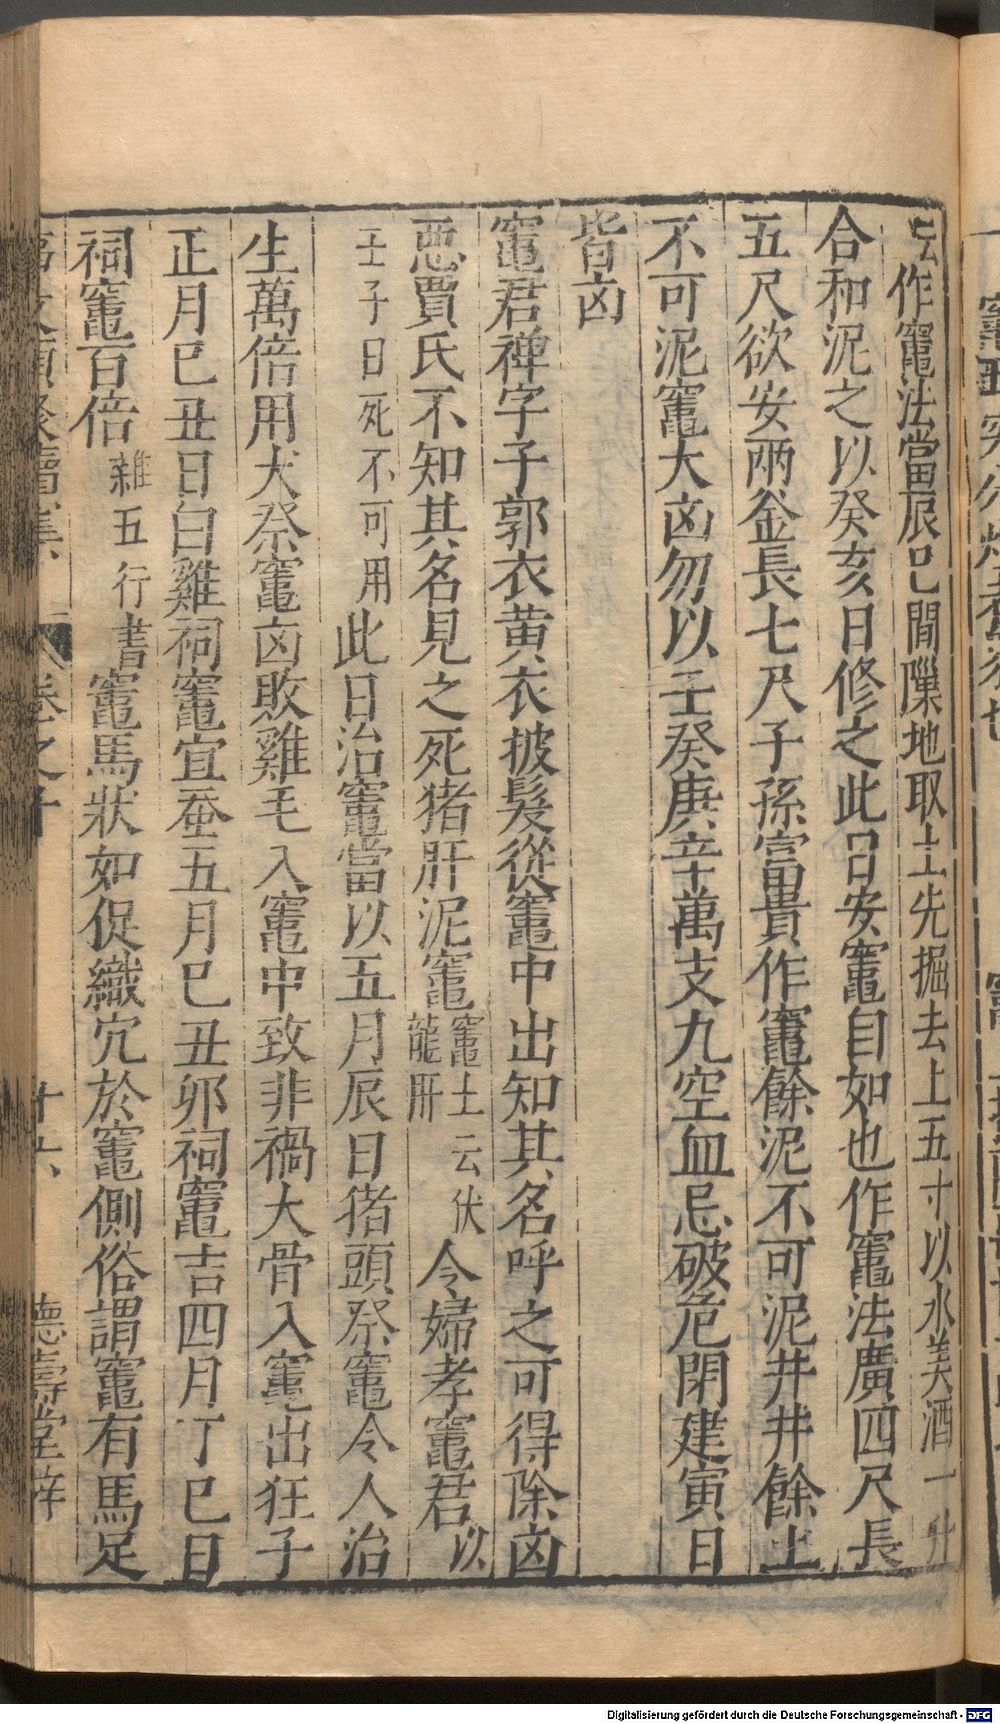 云作竈法當辰巳間隟地取土先掘去上五寸以水美酒一升
合和泥之以癸亥日修之此日安竈自如也作竈法廣四尺長
五尺欲安兩釜長七尺子孫富貴作竈餘泥不可泥井井餘土
不可泥竈大凶勿以壬癸庚辛萬支九空血忌破危閉建寅日
皆凶
竈君禪字子郭衣黃衣披髮從竈中出知其名呼之可得除凶
惡賈氏不知其名見之死猪肝泥竈竈土云伏龍肝令婦孝竈君以
壬子日死不可用此日治竈當以五月辰日猪頭祭竈令人治
生萬倍用犬祭竈凶敗雞毛入竈中致非禍大骨入竈出狂子
正月巳丑日白雞祠竈宜蚕五月巳丑卯祠竈吉四月丁巳日
祠竈百倍雜五行書竈馬狀如促織穴於竈側俗謂竈有馬足
事文類聚續集 卷之十 十六 德壽堂梓
Digitalisierung gefördert durch die Deutsche Forschungsgemeinschaft - DFG